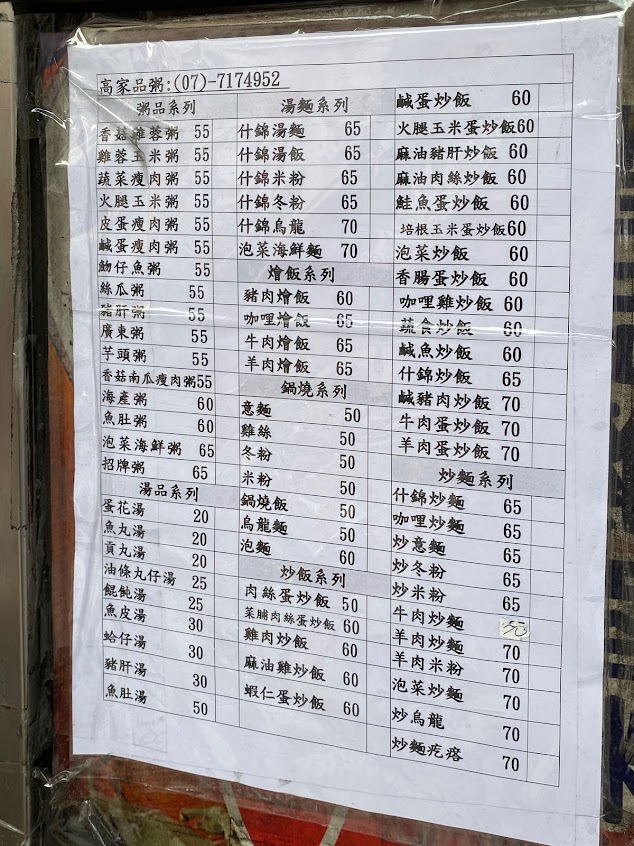 高家品粥:(07)-7174952
粥品系列
香菇雞蓉粥 55
雞蓉玉米粥 55
蔬菜瘦肉粥 55
火腿玉米粥 55
皮蛋瘦肉粥 55
鹹蛋瘦肉粥 55
魩仔魚粥 55
絲瓜粥 55
豬肝粥 55
廣東粥 55
芋頭粥 55
香菇南瓜瘦肉粥55
海產粥 60
魚肚粥 60
泡菜海鮮粥 65
招牌粥 65
湯品系列
蛋花湯 20
魚丸湯 20
貢丸湯 20
油條丸仔湯 25
餛飩湯 25
魚皮湯 30
蛤仔湯 30
豬肝湯 30
魚肚湯 50
湯麵系列
什錦湯麵 65
什錦湯飯 65
什錦米粉 65
什錦冬粉 65
什錦烏龍 70
泡菜海鮮麵 70
燴飯系列
豬肉燴飯 60
咖哩燴飯 65
牛肉燴飯 65
羊肉燴飯 65
鍋燒系列
意麵 50
雞絲 50
冬粉 50
米粉 50
鍋燒飯 50
烏龍麵 50
泡麵 60
炒飯系列
肉絲蛋炒飯 50
菜脯肉絲蛋炒飯 60
雞肉炒飯 60
麻油雞炒飯 60
蝦仁蛋炒飯 60
鹹蛋炒飯 60
火腿玉米蛋炒飯60
麻油豬肝炒飯 60
麻油肉絲炒飯 60
鮭魚蛋炒飯 60
培根玉米蛋炒飯60
泡菜炒飯 60
香腸蛋炒飯 60
咖哩雞炒飯 60
蔬食炒飯 60
鹹魚炒飯 60
什錦炒飯 65
鹹豬肉炒飯 70
牛肉蛋炒飯 70
羊肉蛋炒飯 70
炒麵系列
什錦炒麵 65
咖哩炒麵 65
炒意麵 65
炒冬粉 65
炒米粉 65
牛肉炒麵
羊肉炒麵 70
羊肉米粉 70
泡菜炒麵 70
炒烏龍 70
炒麵疙瘩 70